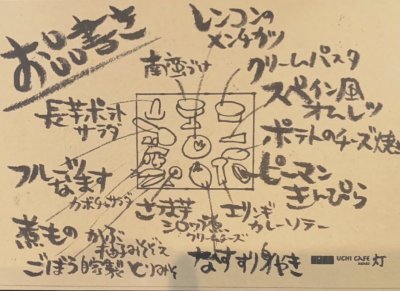 お品書き
レンコンの
メンチカツ
南蛮づけ
クリームパスタ
スペイン風
オムレツ
長芋ポテト
サラダ
ポテトのチーズ焼き
フルーツ
なます
カボチャサラダ
ピーマン
きんぴら
さつま芋
クリームチーズ
エリンギ
カレーソテー
煮もの かぶ
ごぼう 自家製
なすすり身やき
UCHI CAFE
灯